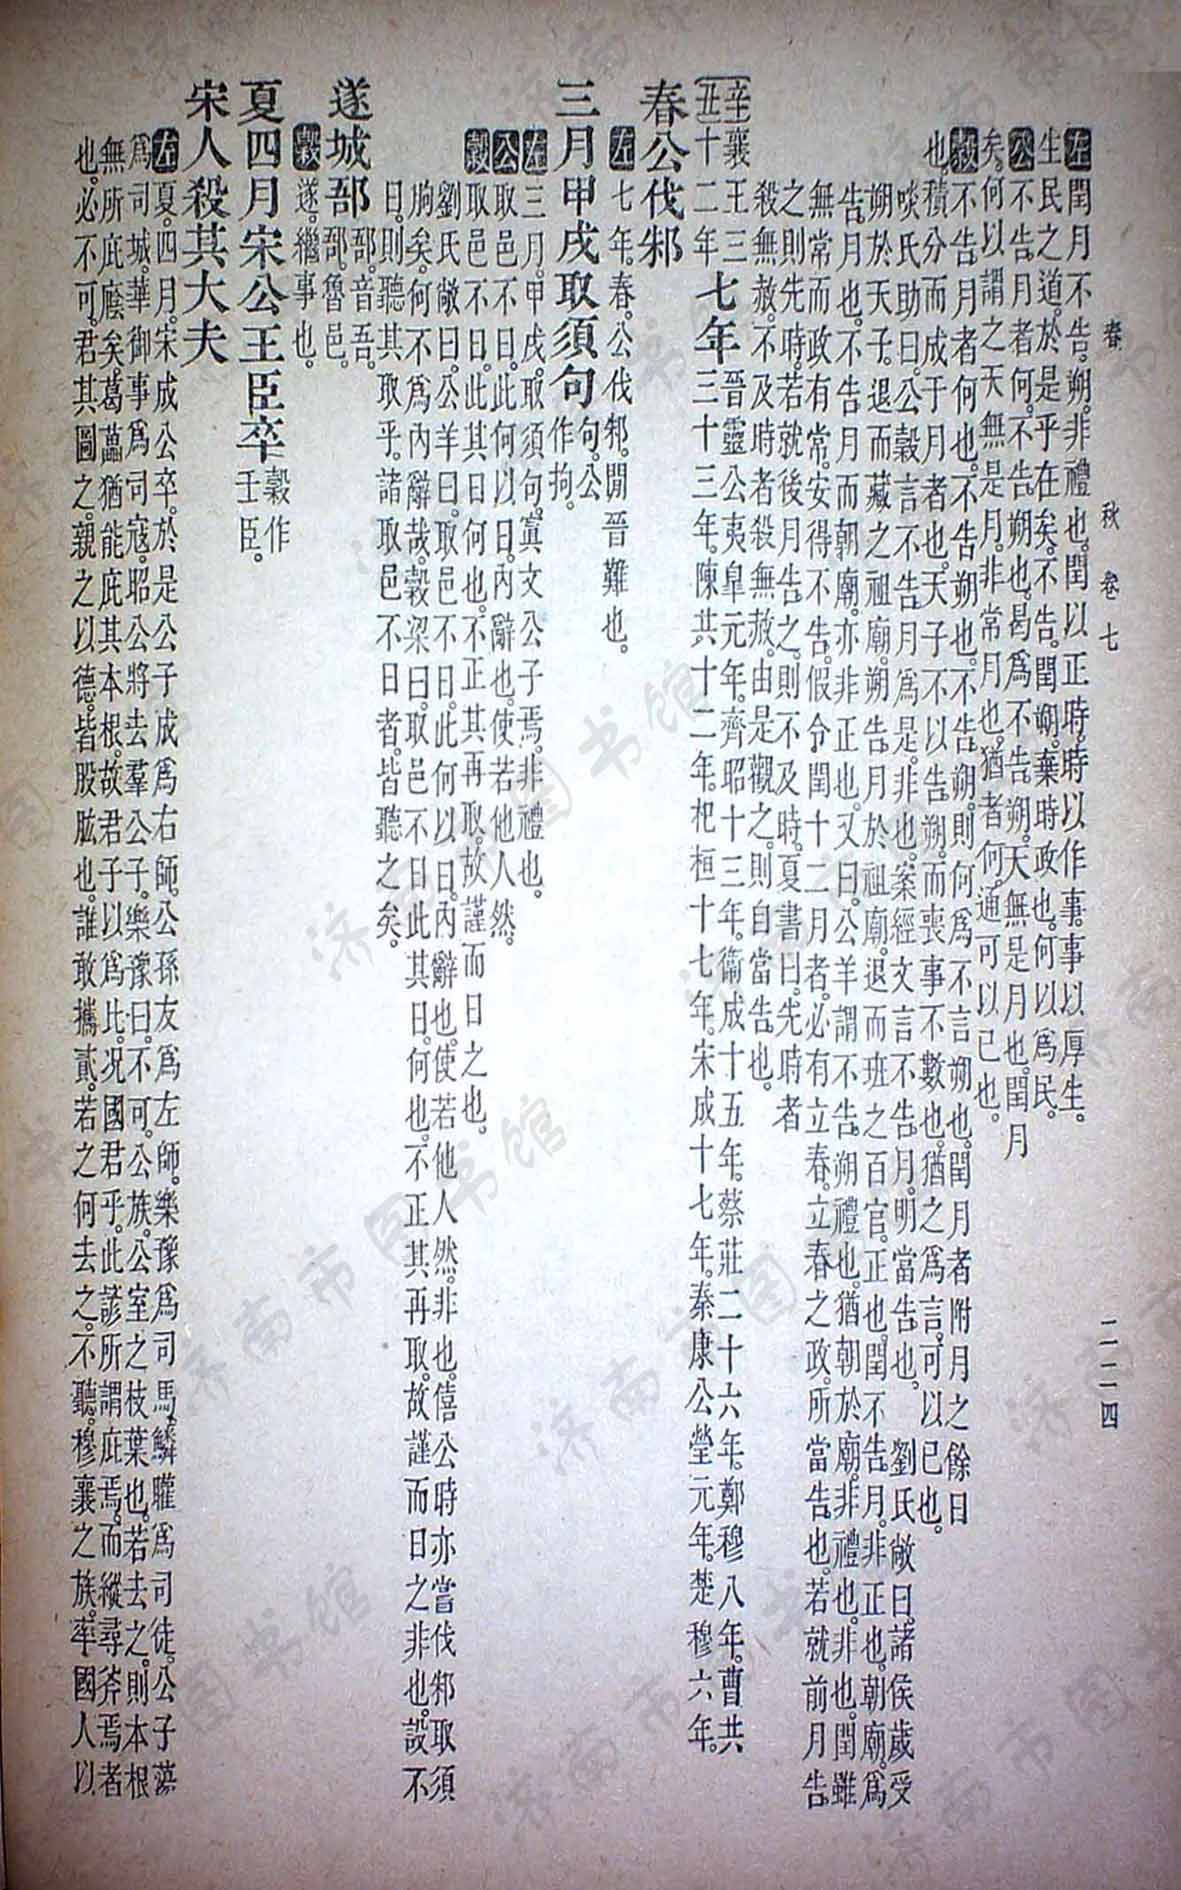 春　秋　卷七　二一一四
左閏月不告朔。非禮也。閏以正時。時以作事。事以厚生。
生民之道。於是乎在矣。不告閏朔。棄時政也。何以爲民。
公不告月者何。不告朔也。曷爲不告朔。天無是月也。閏月
矣。何以謂之天無是月。非常月也。猶者何。通可以已也。
穀不告月者何也。不告朔也。不告朔。則何爲不言朔也。閏月者附月之餘日
也。積分而成于月者也。天子不以告朔。而喪事不數也。猶之爲言。可以已也。
啖氏助曰。公穀言不告月爲是。非也。案經文言不告月。明當告也。　劉氏敞曰。諸侯歲受
朔於天子。退而藏之祖廟。朔告月於祖廟。退而班之百官。正也。閏不告月。非正也。朝廟。爲
告月也。不告月而朝廟。亦非正也。又曰。公羊謂不告朔禮也。猶朝於廟。非禮也。非也。閏雖
無常。而政有常。安得不告。假令閏十二月者。必有立春。立春之政。所當告也。若就前月告
之。則先時。若就後月告之。則不及時。夏書曰。先時者
殺無赦。不及時者殺無赦。由是觀之。則自當告也。
辛丑 襄王三十二年 七年 晉靈公夷皋元年。齊昭十三年。衞成十五年。蔡莊二十六年。鄭穆八年。曹共三十三年。陳共十二年。杞桓十七年。宋成十七年。秦康公罃元年。楚穆六年。
春公伐邾
左七年。春。公伐邾。閒晉難也。
三月甲戌取須句 句。公作拘。
左三月。甲戌。取須句。寘文公子焉。非禮也。
公取邑不日。此何以日。內辭也。使若他人然。
穀取邑不日。此其日何也。不正其再取。故謹而日之也。
劉氏敞曰。公羊曰。取邑不日。此何以日。內辭也。使若他人然。非也。僖公時亦當伐邾取須
朐矣。何不爲內辭哉。穀梁曰。取邑不日。此其日。何也。不正其再取。故謹而日之。非也。設不
日。則聽其取乎。諸取邑不日者。皆聽之矣。
遂城郚 郚。音吾。郚。魯邑。
穀遂。繼事也。
夏四月宋公王臣卒 穀作壬臣。
宋人殺其大夫
左夏。四月。宋成公卒。於是公子成爲右師。公孫友爲左師。樂豫爲司馬。鱗矔爲司徒。公子蕩
爲司城。華御事爲司寇。昭公將去羣公子。樂豫曰。不可。公族。公室之枝葉也。若去之。則本根
無所庇廕矣。葛藟猶能庇其本根。故君子以爲比。況國君乎。此諺所謂庇焉。而縱尋斧焉者
也。必不可。君其圖之。親之以德。皆股肱也。誰敢攜貳。若之何去之。不聽。穆襄之族。率國人以